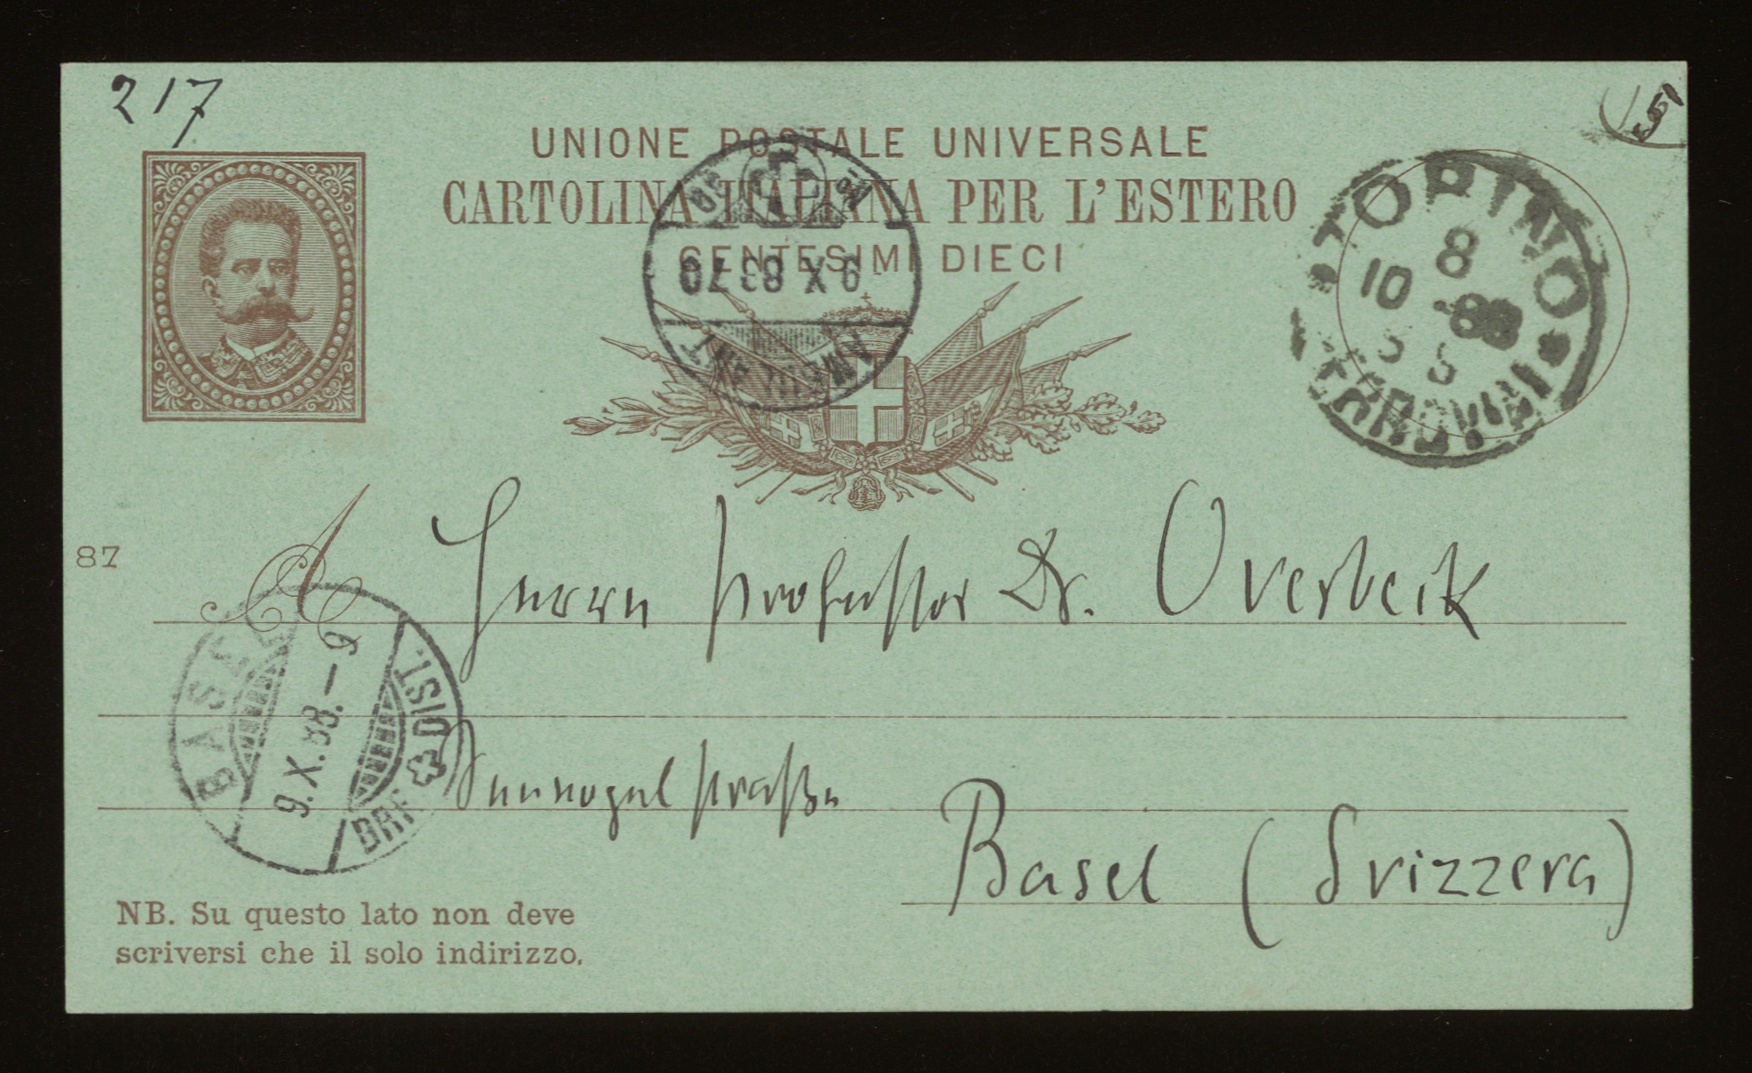 217
UNIONE POSTALE UNIVERSALE
CARTOLINA ITALIANA PER L'ESTERO
CENTESIMI DIECI
TORINO
8
10 88
FERROVIA
9 X 88
AMBULANT
87
A Herrn Professor Dr. Overbeck
BASEL
9.X.88.–9
BRF. DIST.
Sennogelstraße
Basel (Svizzera)
NB. Su questo lato non deve
scriversi che il solo indirizzo.